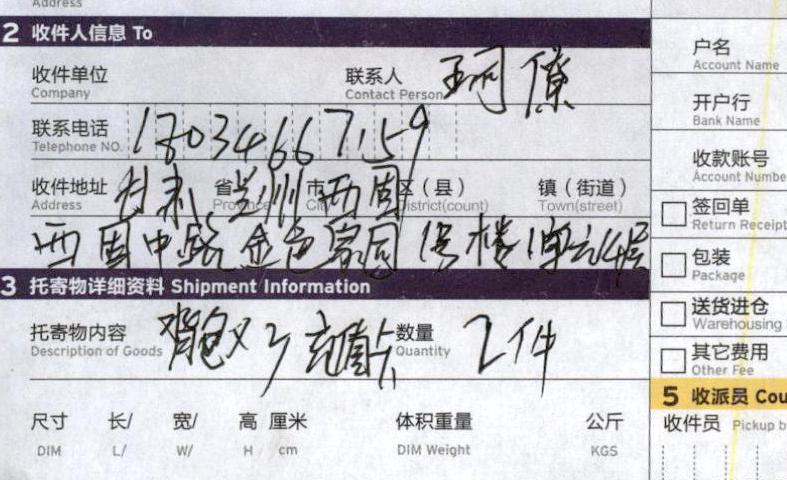 Address
2 收件人信息 To
收件单位 联系人 珂僚
Company Contact Person
联系电话 18034667159
Telephone NO.
收件地址 甘肃 省 兰州 市 西固 区（县） 镇（街道）
Address Province City District(count) Town(street)
西固中路金色家园 1号楼1单元4层
3 托寄物详细资料 Shipment Information
托寄物内容 充值卡 数量 2件
Description of Goods Quantity
尺寸 长/ 宽/ 高 厘米 体积重量 公斤
DIM L/ W/ H cm DIM Weight KGS
户名
Account Name
开户行
Bank Name
收款账号
Account Numbe
签回单
Return Receipt
包装
Package
送货进仓
Warehousing
其它费用
Other Fee
5 收派员 Cou
收件员 Pickup b